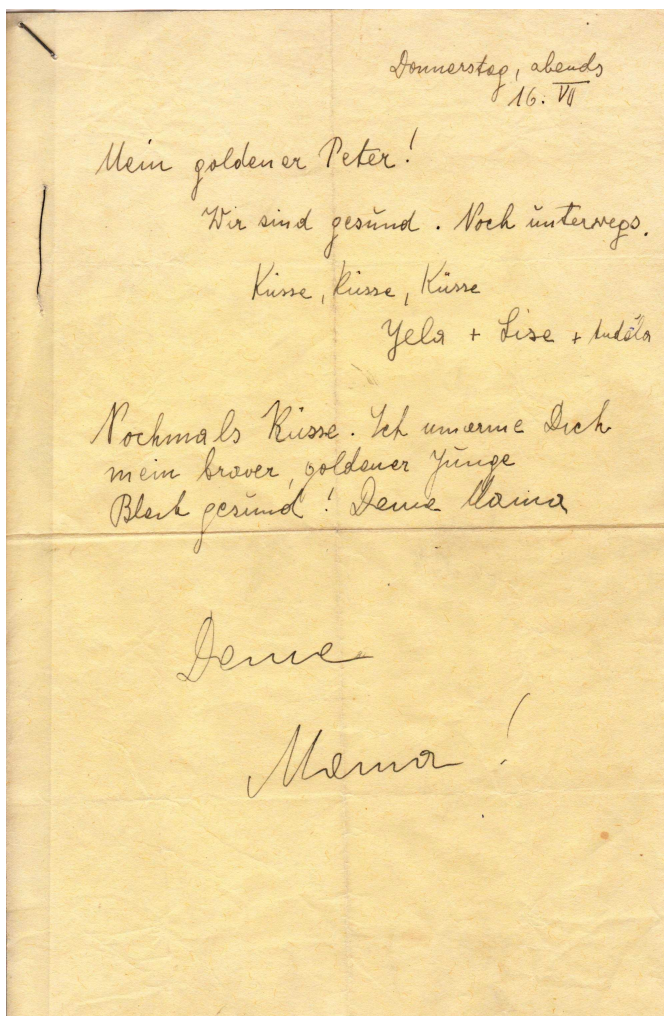 Donnerstag, abends
16. VII
Mein goldener Peter!
Wir sind gesund. Noch unterwegs.
Küsse, Küsse, Küsse
Yela + Lise +
Nochmals Küsse. Ich umarme Dich
mein braver, goldener Junge
Bleib gesund! Deine Mama
Deine
Mama!